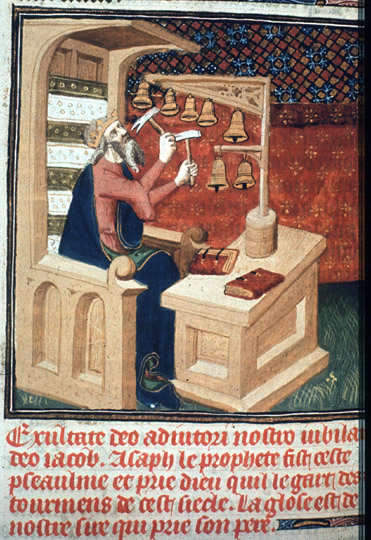 Exultate deo adiutori nostro iubila
deo iacob. Asaph le prophete fist ceste
pseaulme et prie dieu quil le gart des
tourmens de cest siecle. La glose est de
nostre sire qui prie son pere.